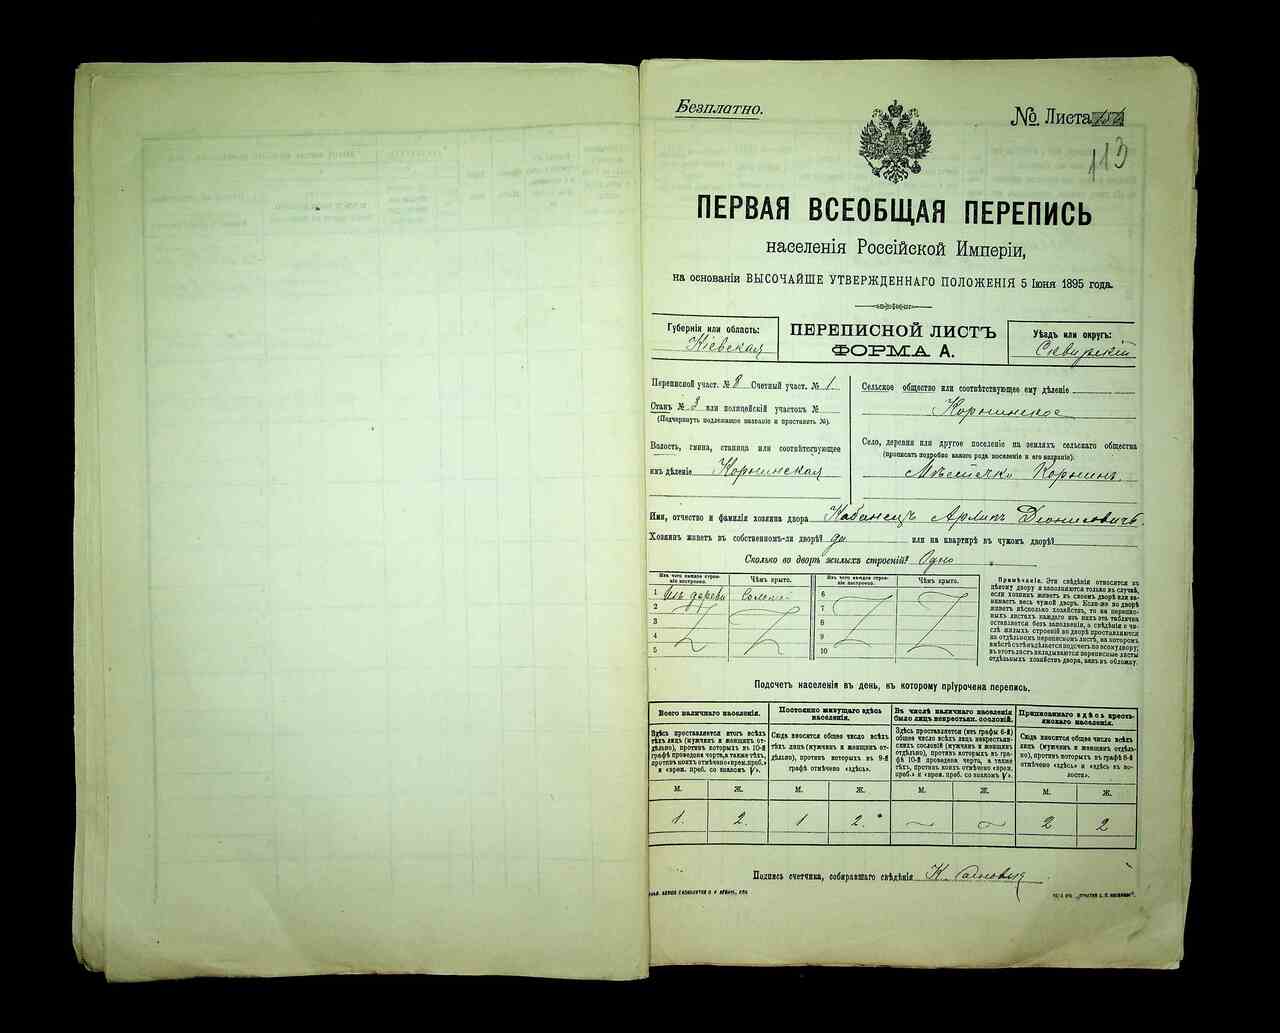 Безплатно.
№ Листа
113
ПЕРВАЯ ВСЕОБЩАЯ ПЕРЕПИСЬ
населенія Россійской Имперіи,
на основаніи ВЫСОЧАЙШЕ УТВЕРЖДЕННАГО ПОЛОЖЕНІЯ 5 Іюня 1895 года.
Губернія или область:
Кіевская
ПЕРЕПИСНОЙ ЛИСТЪ
ФОРМА А.
Уѣздъ или округъ:
Сквирскій
Переписной участ. № 8 Счетный участ. № 1
Станъ № 3 или полицейскій участокъ №
(Подчеркнуть подлежащее названіе и проставить №).
Волость, гмина, станица или соотвѣтствующее
имъ дѣленіе Корнинская
Сельское общество или соотвѣтствующее ему дѣленіе
Корнинское
Село, деревня или другое поселеніе на земляхъ сельскаго общества
(прописать подробно какого рода поселеніе и его названіе).
Мѣстечко Корнинъ
Имя, отчество и фамилія хозяина двора Кабанецъ Архипъ Діонисовичъ
Хозяинъ живетъ въ собственномъ-ли дворѣ? да или на квартирѣ въ чужомъ дворѣ?
Сколько во дворѣ жилыхъ строеній? Одно
Изъ чего каждое строеніе построено.
Чѣмъ крыто.
Изъ чего каждое строеніе построено.
Чѣмъ крыто.
1 Изъ дерева Соломой 6
2 7
3 8
4 9
5 10
Примѣчаніе. Эти свѣдѣнія относятся къ
цѣлому двору и заполняются только въ случаѣ,
если хозяинъ живетъ въ своемъ дворѣ или занимаетъ
весь чужой дворъ. Если-же во дворѣ
живетъ нѣсколько хозяйствъ, то на переписныхъ
листахъ каждаго изъ нихъ эта табличка
оставляется безъ заполненія, а свѣдѣнія о числѣ
жилыхъ строеній во дворѣ проставляются
на отдѣльномъ переписномъ листѣ, на которомъ
вмѣстѣ съ тѣмъ дѣлается подсчетъ по всему двору;
въ этотъ листъ вкладываются переписные листы
отдѣльныхъ хозяйствъ двора, какъ въ обложку.
Подсчетъ населенія въ день, къ которому пріурочена перепись.
Всего наличнаго населенія.
Здѣсь проставляется итогъ всѣхъ
тѣхъ лицъ (мужчинъ и женщинъ отдѣльно),
противъ которыхъ въ 10-й
графѣ проведена черта, а также тѣхъ,
противъ коихъ отмѣчено «врем. преб.»
и «врем. преб. со знакомъ V».
Постоянно живущаго здѣсь
населенія.
Сюда вносится общее число всѣхъ
тѣхъ лицъ (мужчинъ и женщинъ отдѣльно),
противъ которыхъ въ 9-й
графѣ отмѣчено «здѣсь».
Въ числѣ наличнаго населенія
было лицъ некрестьян. сословій.
Здѣсь проставляется (изъ графы 6-й)
общее число всѣхъ лицъ некрестьянскихъ
сословій (мужчинъ и женщинъ
отдѣльно), противъ которыхъ въ графѣ
10-й проведена черта, а также
тѣхъ, противъ коихъ отмѣчено «врем.
преб.» и «врем. преб. со знакомъ V».
Приписаннаго здѣсь крестьянскаго
населенія.
Сюда вносится общее число всѣхъ
лицъ (мужчинъ и женщинъ отдѣльно),
противъ которыхъ въ графѣ 8-й
отмѣчено «здѣсь» и «здѣсь въ волости».
М. Ж. М. Ж. М. Ж. М. Ж.
1. 2. 1 2. 2 2
Подпись счетчика, собиравшаго свѣдѣнія К.